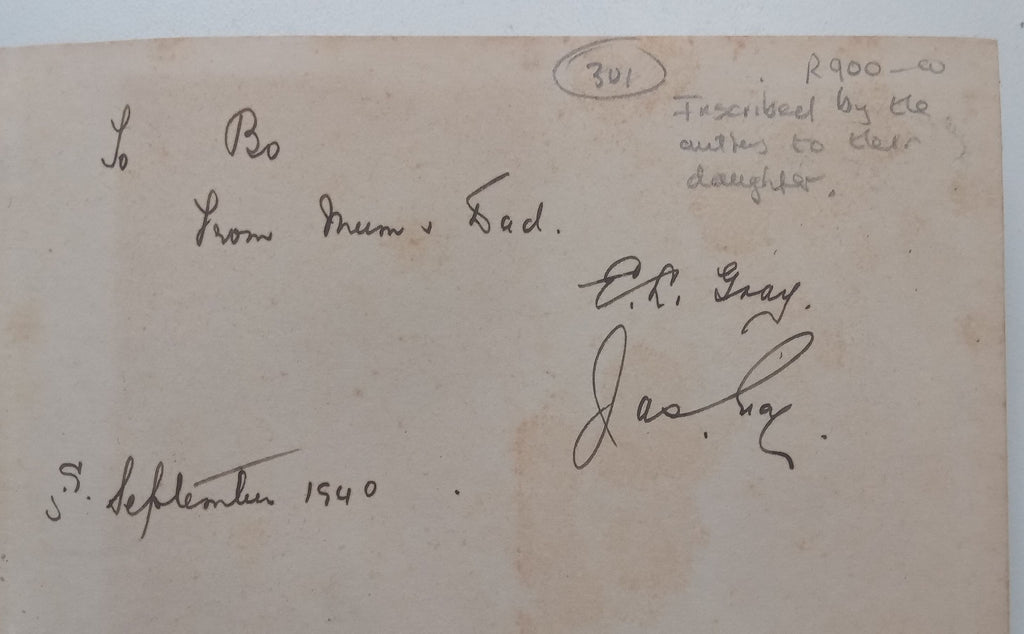 301
R900-00
Inscribed by the
authors to their
daughter.
To Bo
From Mum & Dad.
E.L. Gray.
Jas. Gray.
5. September 1940